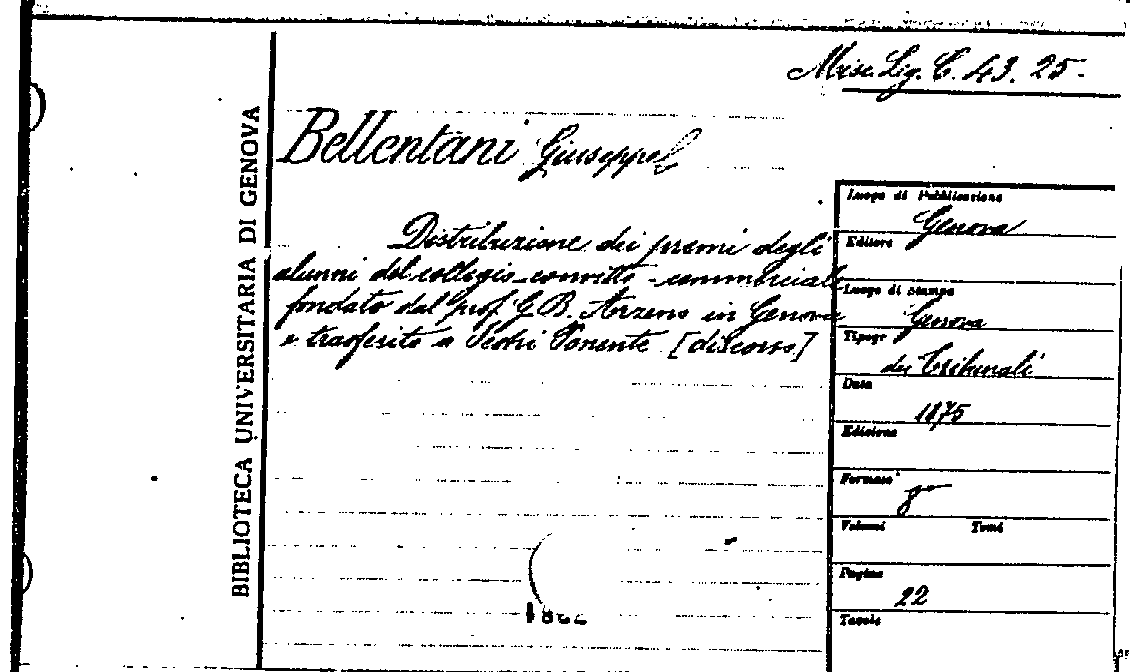 Misc. Lig. C. 43. 25.
BIBLIOTECA UNIVERSITARIA DI GENOVA
Bellentani Giuseppe
Distribuzione dei premi degli
alunni del collegio-convitto-commerciale
fondato dal prof. G. B. in Genova
e trasferito a Sestri Ponente [discorso]
Luogo di Pubblicazione
Genova
Editore
Luogo di stampa
Genova
Tipogr
dei Tribunali
Data
1875
Edizione
Formato
8°
Volumi Tomi
Pagine
22
Tavole